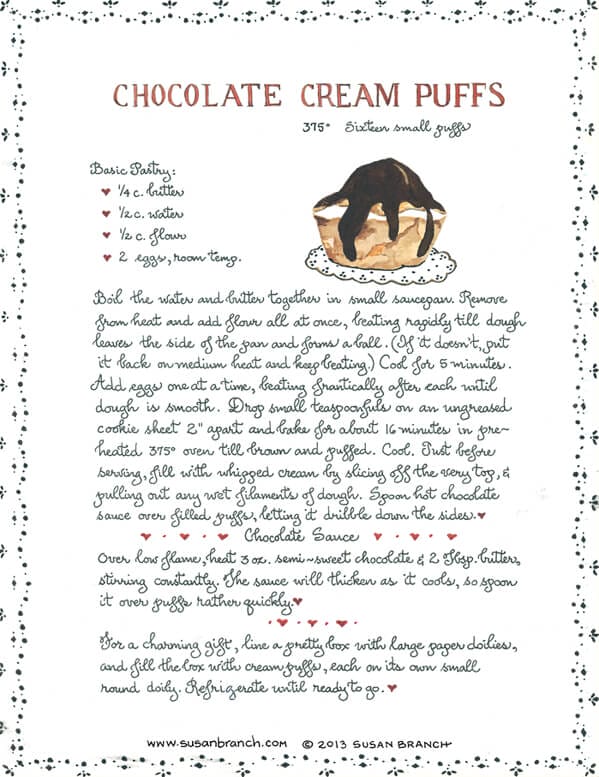 CHOCOLATE CREAM PUFFS
375° Sixteen small puffs
Basic Pastry:
1/4 c. butter
1/2 c. water
1/2 c. flour
2 eggs, room temp.
Boil the water and butter together in small saucepan. Remove
from heat and add flour all at once, beating rapidly till dough
leaves the side of the pan and forms a ball. (If it doesn't, put
it back on medium heat and keep beating.) Cool for 5 minutes.
Add eggs one at a time, beating frantically after each until
dough is smooth. Drop small teaspoonfuls on an ungreased
cookie sheet 2" apart and bake for about 16 minutes in pre-
heated 375° oven till brown and puffed. Cool. Just before
serving, fill with whipped cream by slicing off the very top, &
pulling out any wet filaments of dough. Spoon hot chocolate
sauce over filled puffs, letting it dribble down the sides.
Chocolate Sauce
Over low flame, heat 3 oz. semi~sweet chocolate & 2 Tbsp. butter,
stirring constantly. The sauce will thicken as it cools, so spoon
it over puffs rather quickly.
For a charming gift, line a pretty box with large paper doilies,
and fill the box with cream puffs, each on its own small
round doily. Refrigerate until ready to go.
www.susanbranch.com © 2013 SUSAN BRANCH